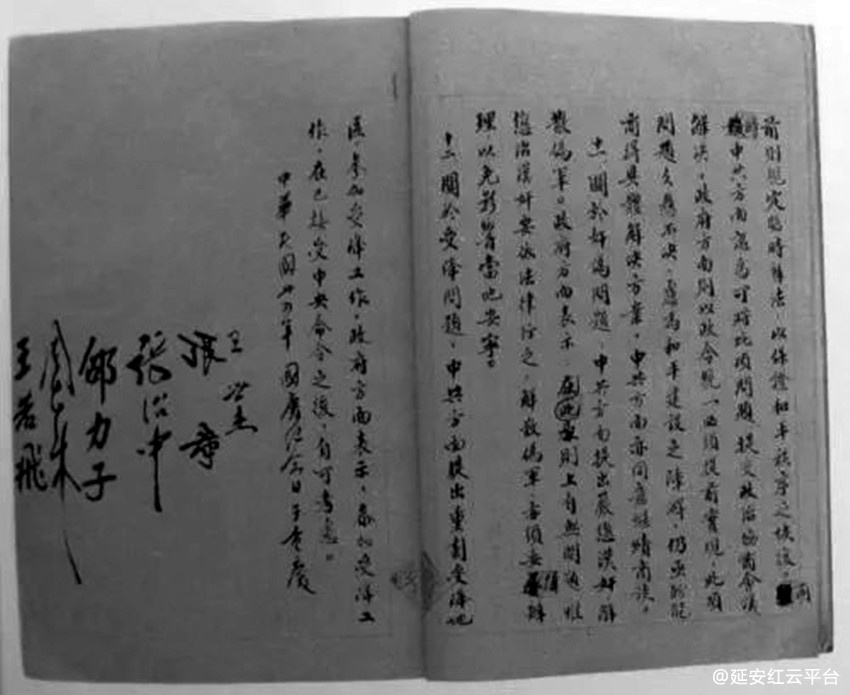 前則規定臨時辦法,以保證和平秩序之恢復。同
時中共方面認為可將此項問題,提交政治協商會議
解決。政府方面則以政令統一必須提前實現,此項
問題久懸不決,慮為和平建設之障碍,仍亟盼能
商得具體解決方案。中共方面亦同意繼續商談。
十一、關於奸偽問題,中共方面提出嚴懲漢奸,解
散偽軍。政府方面表示,在此原則上自無問題,惟
懲治漢奸要依法律行之,解散偽軍,亦須妥慎辦
理以免影響當地安寧。
十二、關於受降問題,中共方面提出重劃受降地
區,參加受降工作。政府方面表示,參加受降工
作,在已接受中央命令之後,自可考慮。
中華民國卅四年國慶紀念日于重慶
王世杰
張羣
張治中
邵力子
周恩來
王若飛
@延安红云平台